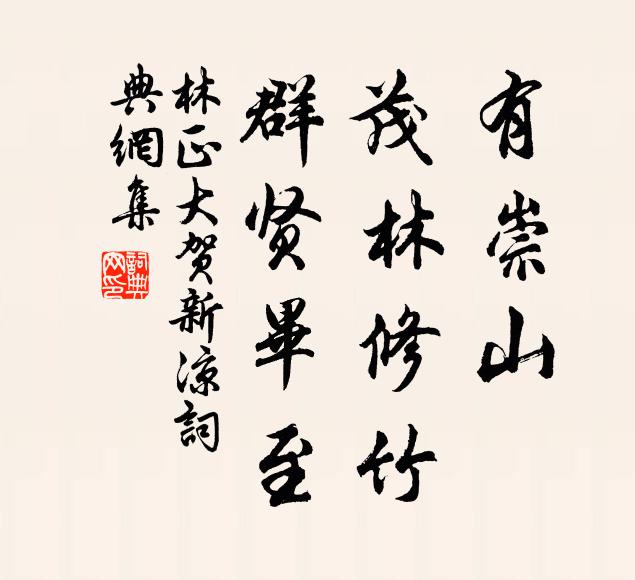 有崇山
茂林修竹
群贤畢至
林正大贺新凉詞
典網集
詞典
网印